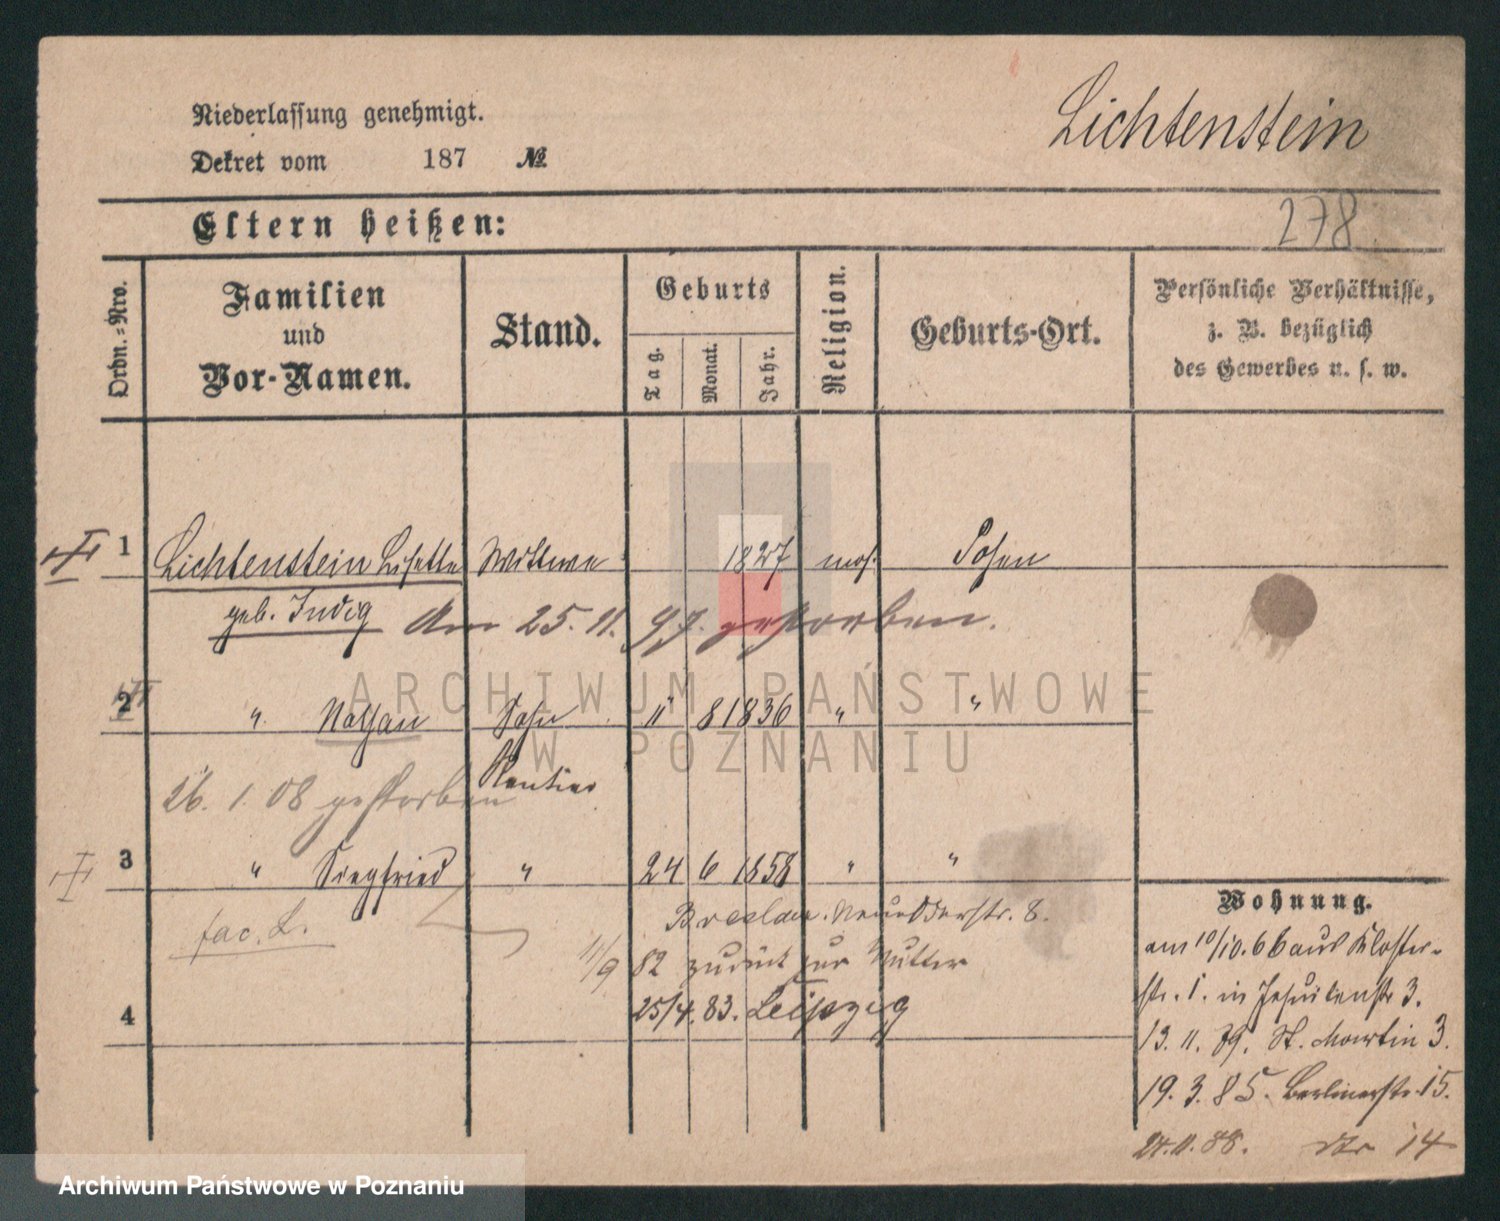 Niederlassung genehmigt.
Lichtenstein
Dekret vom 187 №
Eltern heißen:
278
Ordn.-Nro.
Familien
und
Vor-Namen.
Stand.
Geburts
Tag.
Monat.
Jahr.
Religion.
Geburts-Ort.
Persönliche Verhältnisse,
z. B. bezüglich
des Gewerbes u. s. w.
1 Lichtenstein Lisette Wittwe 1827 mos. Posen
geb. Judig
Am 25.11.97. gestorben.
ARCHIWUM PAŃSTWOWE
2 " Nathan Sohn 11 8 1836 " "
W POZNANIU
Rentier
26. 1. 08 gestorben
3 " Siegfried " 24 6 1858 " "
fac. L.
Breslau. Neue Oderstr. 8.
11/9 82 zurück zur Mutter
4
25/4. 83. Leipzig
Wohnung.
am 10/10. 66 aus Kloster-
str. 1. in Jesuitenstr 3.
13. 11. 79. St. Martin 3.
19. 3. 85. Berlinerstr. 15.
24. 11. 88. 14
Archiwum Państwowe w Poznaniu